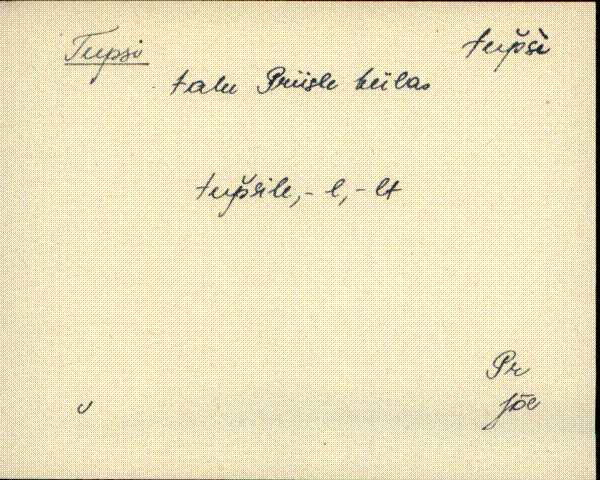 Tupsi tup̆si
talu Priisle külas
tup̆sile, -l, -lt
Pr
Jõe